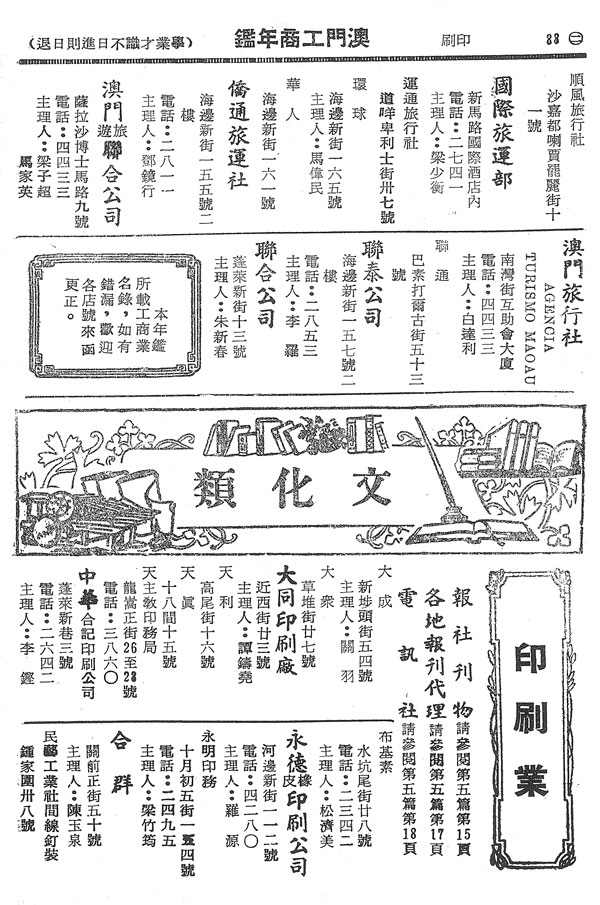 ㊂ 88
印刷
澳門工商年鑑
（學業才識不日進則日退）
順風旅行社
沙嘉都喇賈罷麗街十
一號
國際旅運部
新馬路國際酒店內
電話：二七四一
主理人：梁少衡
運通旅行社
道咩卑利士街卅七號
環球
海邊新街一六五號
主理人：馬偉民
華人
海邊新街一六一號
僑通旅運社
海邊新街一五五號二
樓
電話：二八一一
主理人：鄧鏡行
澳門旅遊聯合公司
薩拉沙博士馬路九號
電話：四四三三
主理人：梁子超
馬家英
澳門旅行社
AGENCIA
TURISMO MAOAU
南灣街互助會大廈
電話：四四三三
主理人：白達利
聯通
巴素打爾古街五十三
號
聯泰公司
海邊新街一五七號二
樓
電話：二八五三
主理人：李羅
聯合公司
蓬萊新街十三號
主理人：朱新春
本年鑑
所載工商業
名錄，如有
錯漏，歡迎
各店號來函
更正。
文化類
印刷業
報社刊物請參閱第五篇第15頁
各地報刊代理請參閱第五篇第17頁
電訊社請參閱第五篇第18頁
大成
新埗頭街五四號
主理人：關羽
大衆
草堆街廿七號
大同印刷廠
近西街廿三號
主理人：譚鑄堯
天利
高尾街十六號
天眞
十八間十五號
天主敎印務局
龍嵩正街26至28號
電話：三八六〇
中華合記印刷公司
蓬萊新巷三號
電話：二六四二
主理人：李鏗
布基素
水坑尾街廿八號
電話：二三四二
主理人：松濟美
永德橡皮印刷公司
河邊新街一一二號
電話：四二八〇
主理人：羅源
永明印務
十月初五街一五四號
電話：二四九五
主理人：梁竹筠
合群
關前正街五十號
主理人：陳玉泉
民藝工業社間線釘裝
鍾家圍卅八號